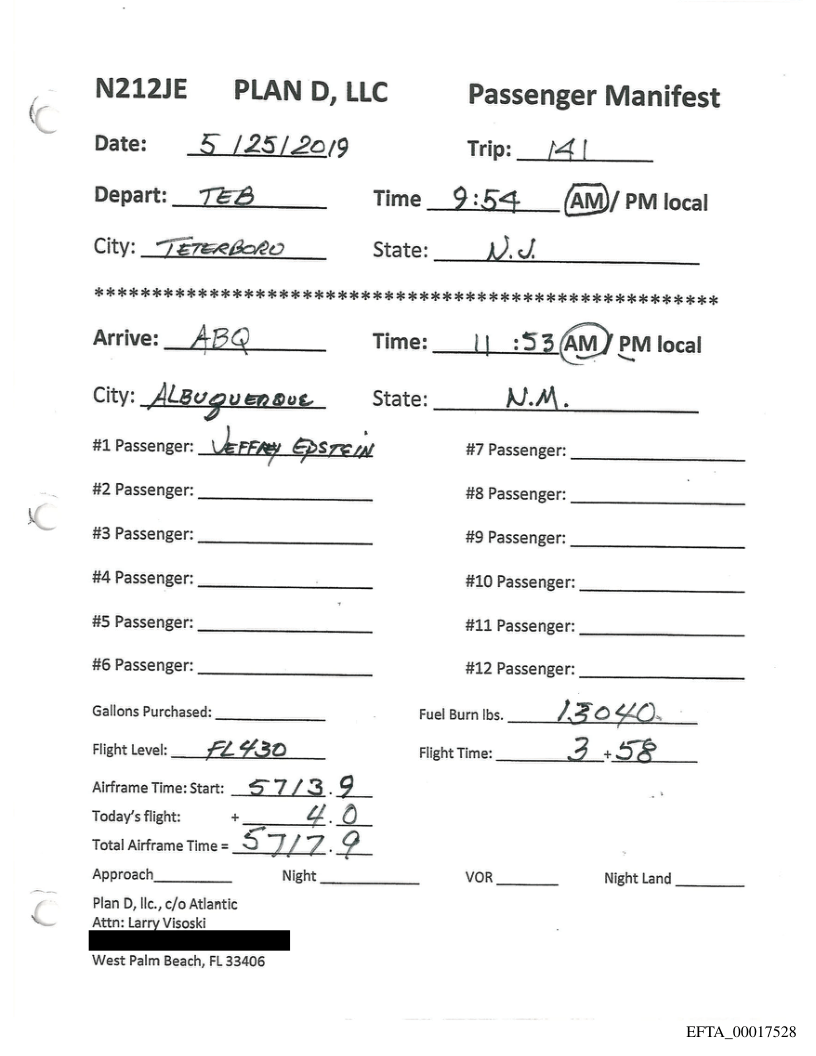 N212JE PLAN D, LLC Passenger Manifest
Date: 5/25/2019 Trip: 141
Depart: TEB Time 9:54 AM / PM local
City: TETERBORO State: N.J.
******************************************************
Arrive: ABQ Time: 11:53 AM / PM local
City: ALBUQUERQUE State: N.M.
#1 Passenger: JEFFREY EPSTEIN #7 Passenger:
#2 Passenger: #8 Passenger:
#3 Passenger: #9 Passenger:
#4 Passenger: #10 Passenger:
#5 Passenger: #11 Passenger:
#6 Passenger: #12 Passenger:
Gallons Purchased: Fuel Burn lbs. 13040
Flight Level: FL430 Flight Time: 3 + 58
Airframe Time: Start: 5713.9
Today's flight: + 4.0
Total Airframe Time = 5717.9
Approach Night VOR Night Land
Plan D, llc., c/o Atlantic
Attn: Larry Visoski
West Palm Beach, FL 33406
EFTA_00017528